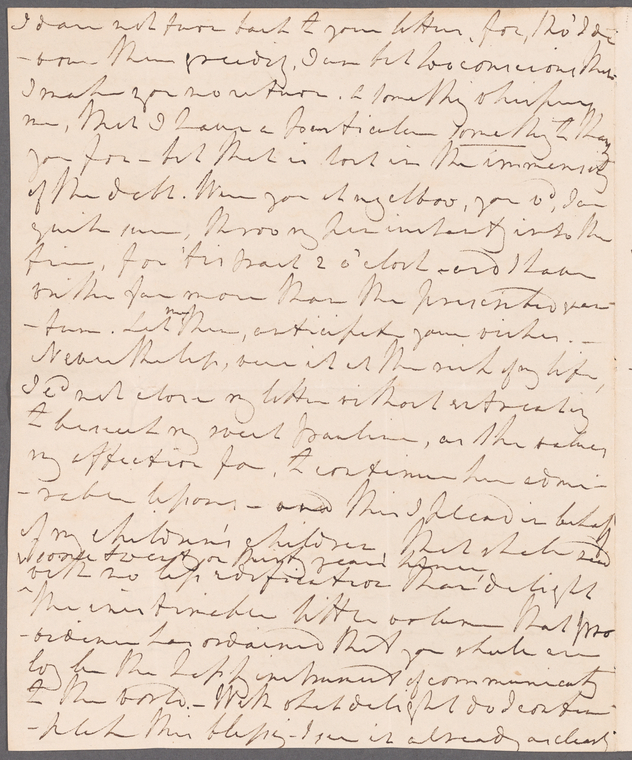 I dare not turn back to your letters, for, tho' I de
-vour them greedily, I am but too conscious that
I make you no return. A something whispers
me, that I have a particular something to thank
you for - but that is lost in the immensity
of the debt. Were you at my elbow, you w'd, I am
quite sure, throw my pen instantly into the
fire, for 'tis past 2 o'clock - and I have
written far more than the presented quan-
-tum. Let me then, anticipate your wishes. -
Nevertheless, were it at the risk of my life,
I c'd not close my letter without entreating
to beseech my sweet Pauline, as she values
my affection for, to continue her admi-
-rable lessons - and this I plead in behalf
of my children's children, that shall read
some twenty or thirty years hence
with no less edification than delight
the inestimable little volume that Pro
-vidence has ordained that you shall ere
long be the happy instrument of communicating
to the world. - With what delight do I contem-
-plate this blessing - I see it already as clearly